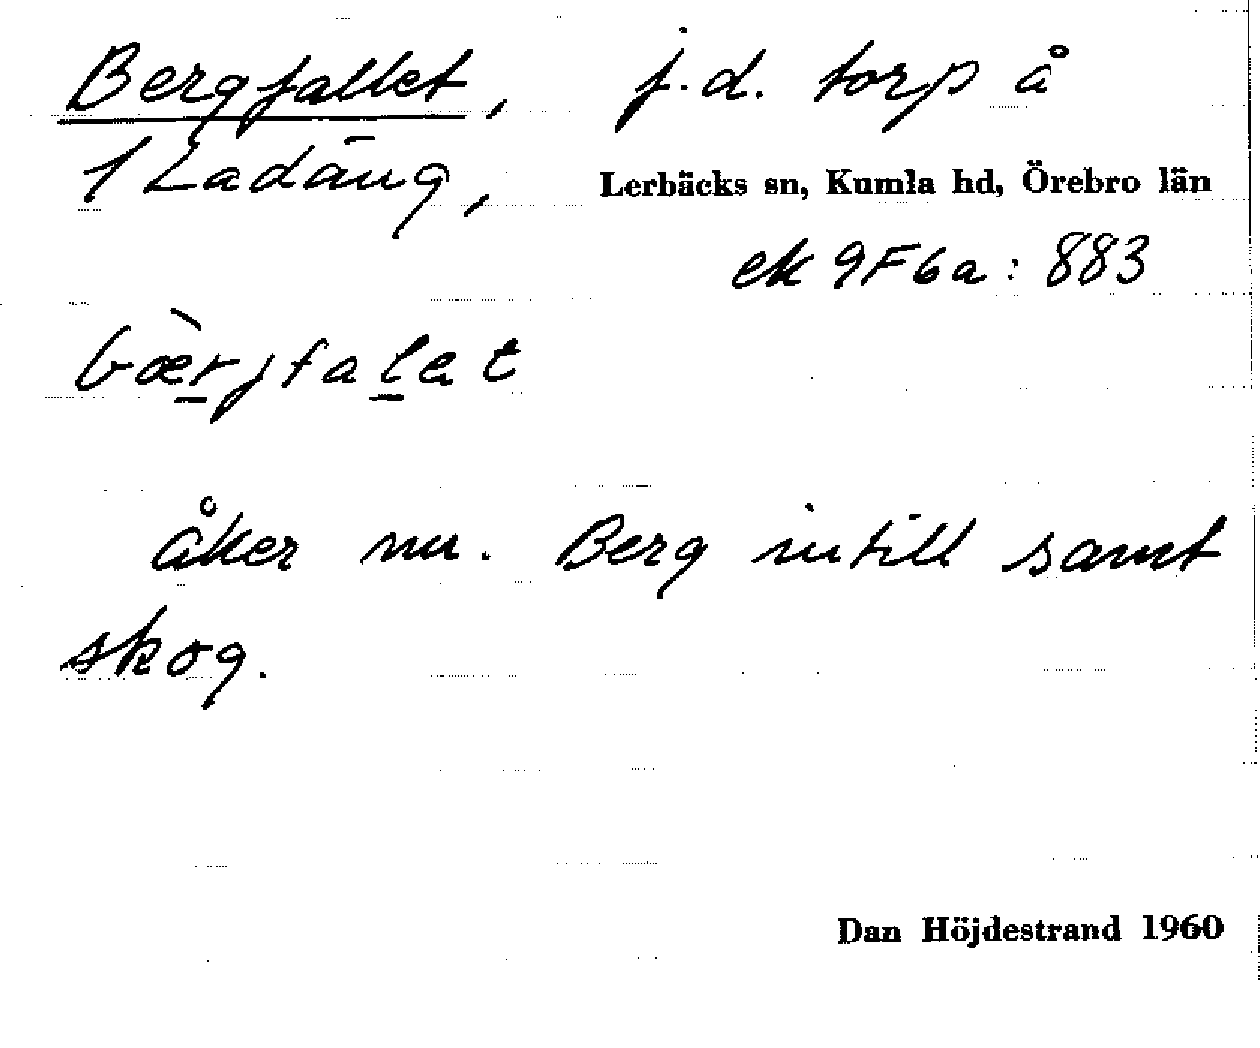 Bergfallet, f.d. torp å
1 Ladäng, Lerbäcks sn, Kumla hd, Örebro län
ek 9F6a: 883
bæ̀rjfalet
åker nu. Berg intill samt
skog.
Dan Höjdestrand 1960